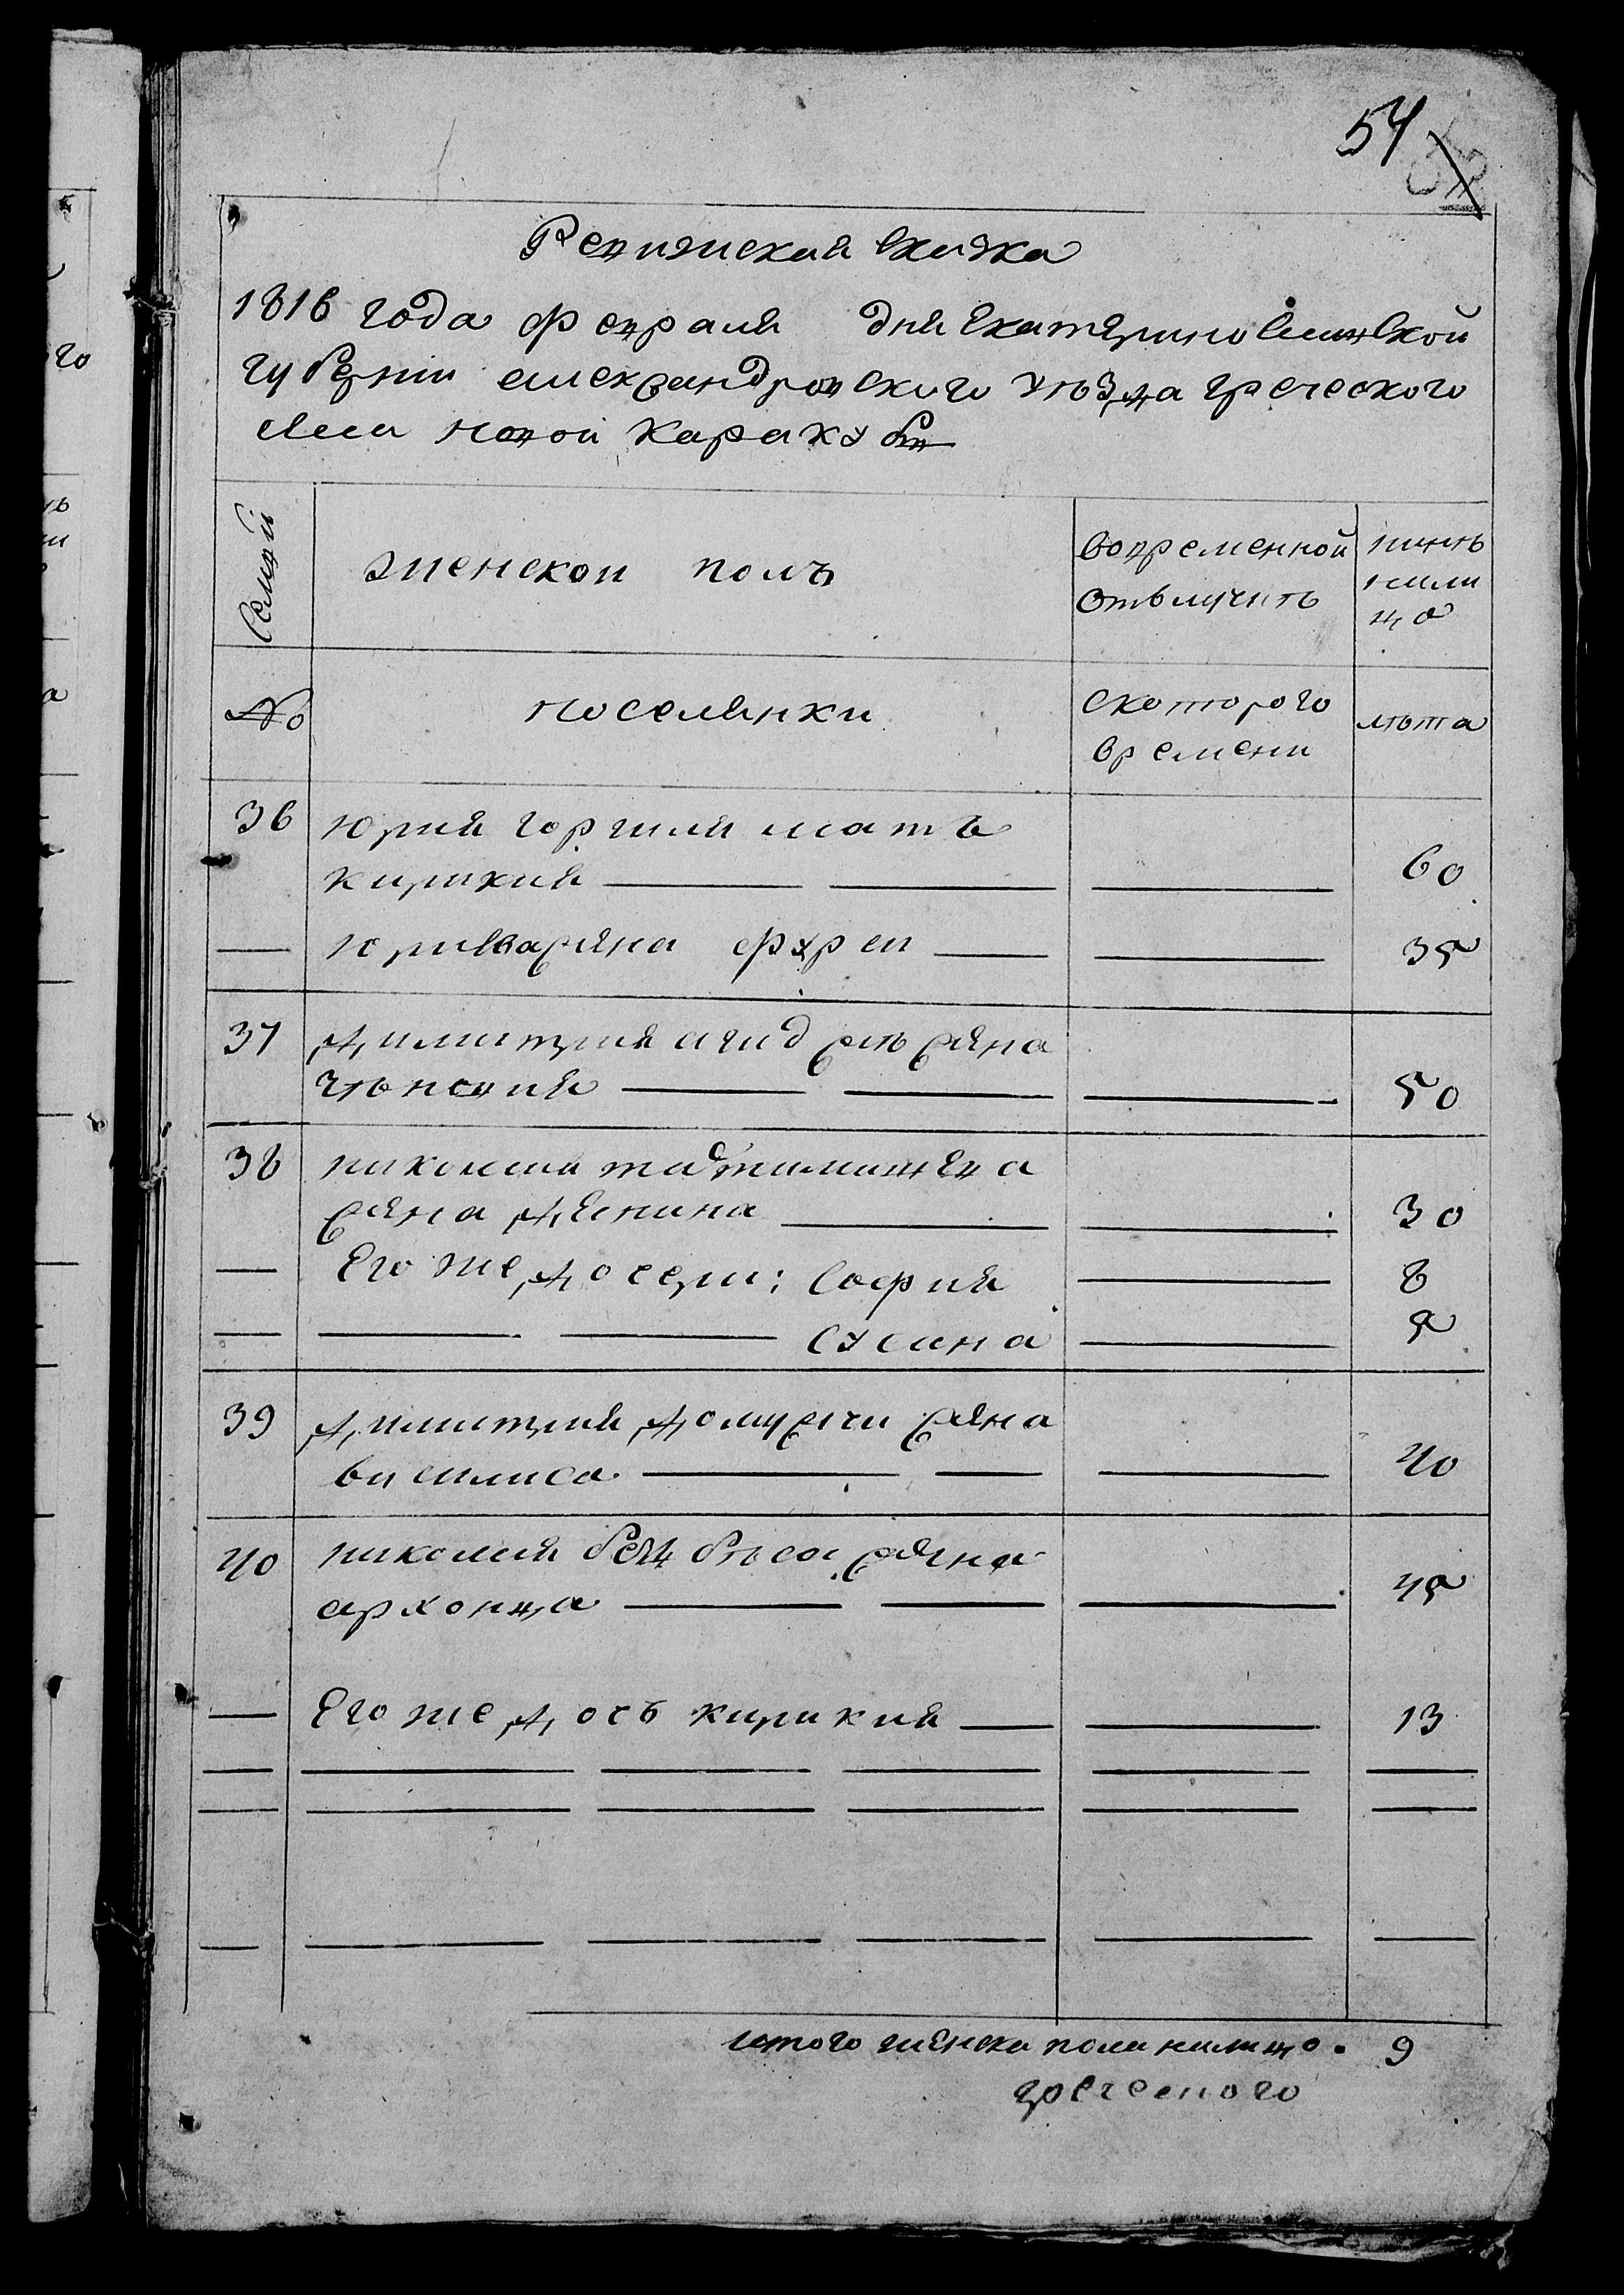 54
Ревижская Скаска
1816 года февраля дня Екатерино Славской
губерніи александровского уѣзда греческого
села новой Каракубы
Семей
женской полъ
вовременной
отълучкѣ
нынѣ
нали
цо
№
поселянки
скоторого
времени
лѣта
36 юрия горгия мать
кирикия 60
— юри жена 35
37 димитрия жена
50
38 николая
жена 30
— Его же дочери: София 8
— Сусана 5
39 димитрия жена
василиса 40
40 николая жена
архонда 45
— Его же дочь кирикия 13
итого женска пола налицо. 9
греческого